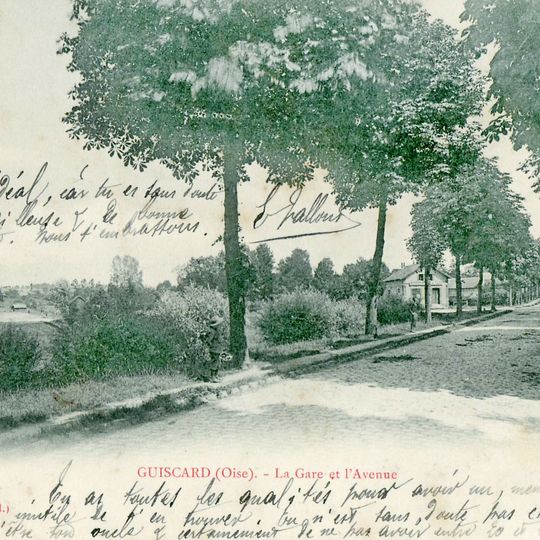 déal, car tu es sans doute
illeuse & de bonne
Nous t'embrassons.
GUISCARD (Oise). - La Gare et l'Avenue
Tu as toutes les qualités pour avoir un
inutile de t'en trouver. Tu n'est sans doute pas
être ton oncle & certainement de ne pas avoir entre 20